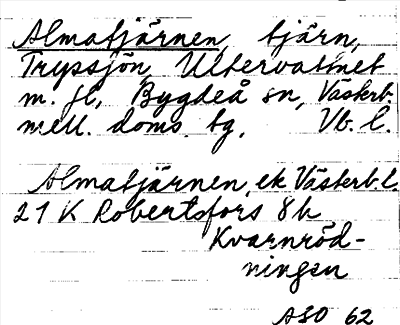 Almatjärnen, tjärn,
Tryssjön, Ultervattnet
m. fl., Bygdeå sn, Västerb.
mell. doms. tg. Vb. l.
Almatjärnen, ek Västerb. l.
21 K Robertsfors 8 h
Kvarnröd-
ningen
ASO 62